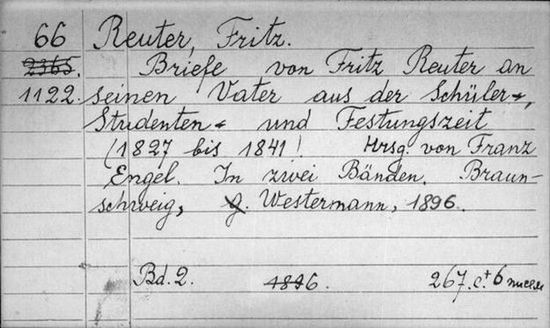 66 Reuter, Fritz.
2365. Briefe von Fritz Reuter an
1122. seinen Vater aus der Schüler-,
Studenten- und Festungszeit
(1827 bis 1841! Hrsg. von Franz
Engel. In zwei Bänden. Braun-
schweig, G. Westermann, 1896.
Bd. 2. 1896. 267.c.+6